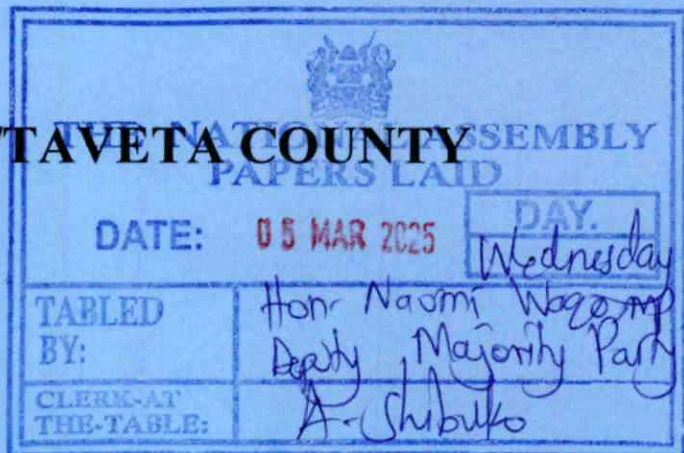 TAVETA COUNTY
THE NATIONAL ASSEMBLY
PAPERS LAID
DATE: 05 MAR 2025
DAY.
Wednesday
TABLED BY:
Hon. Naomi Waqo, MP
Deputy Majority Party
CLERK-AT THE-TABLE:
A. Shibuko